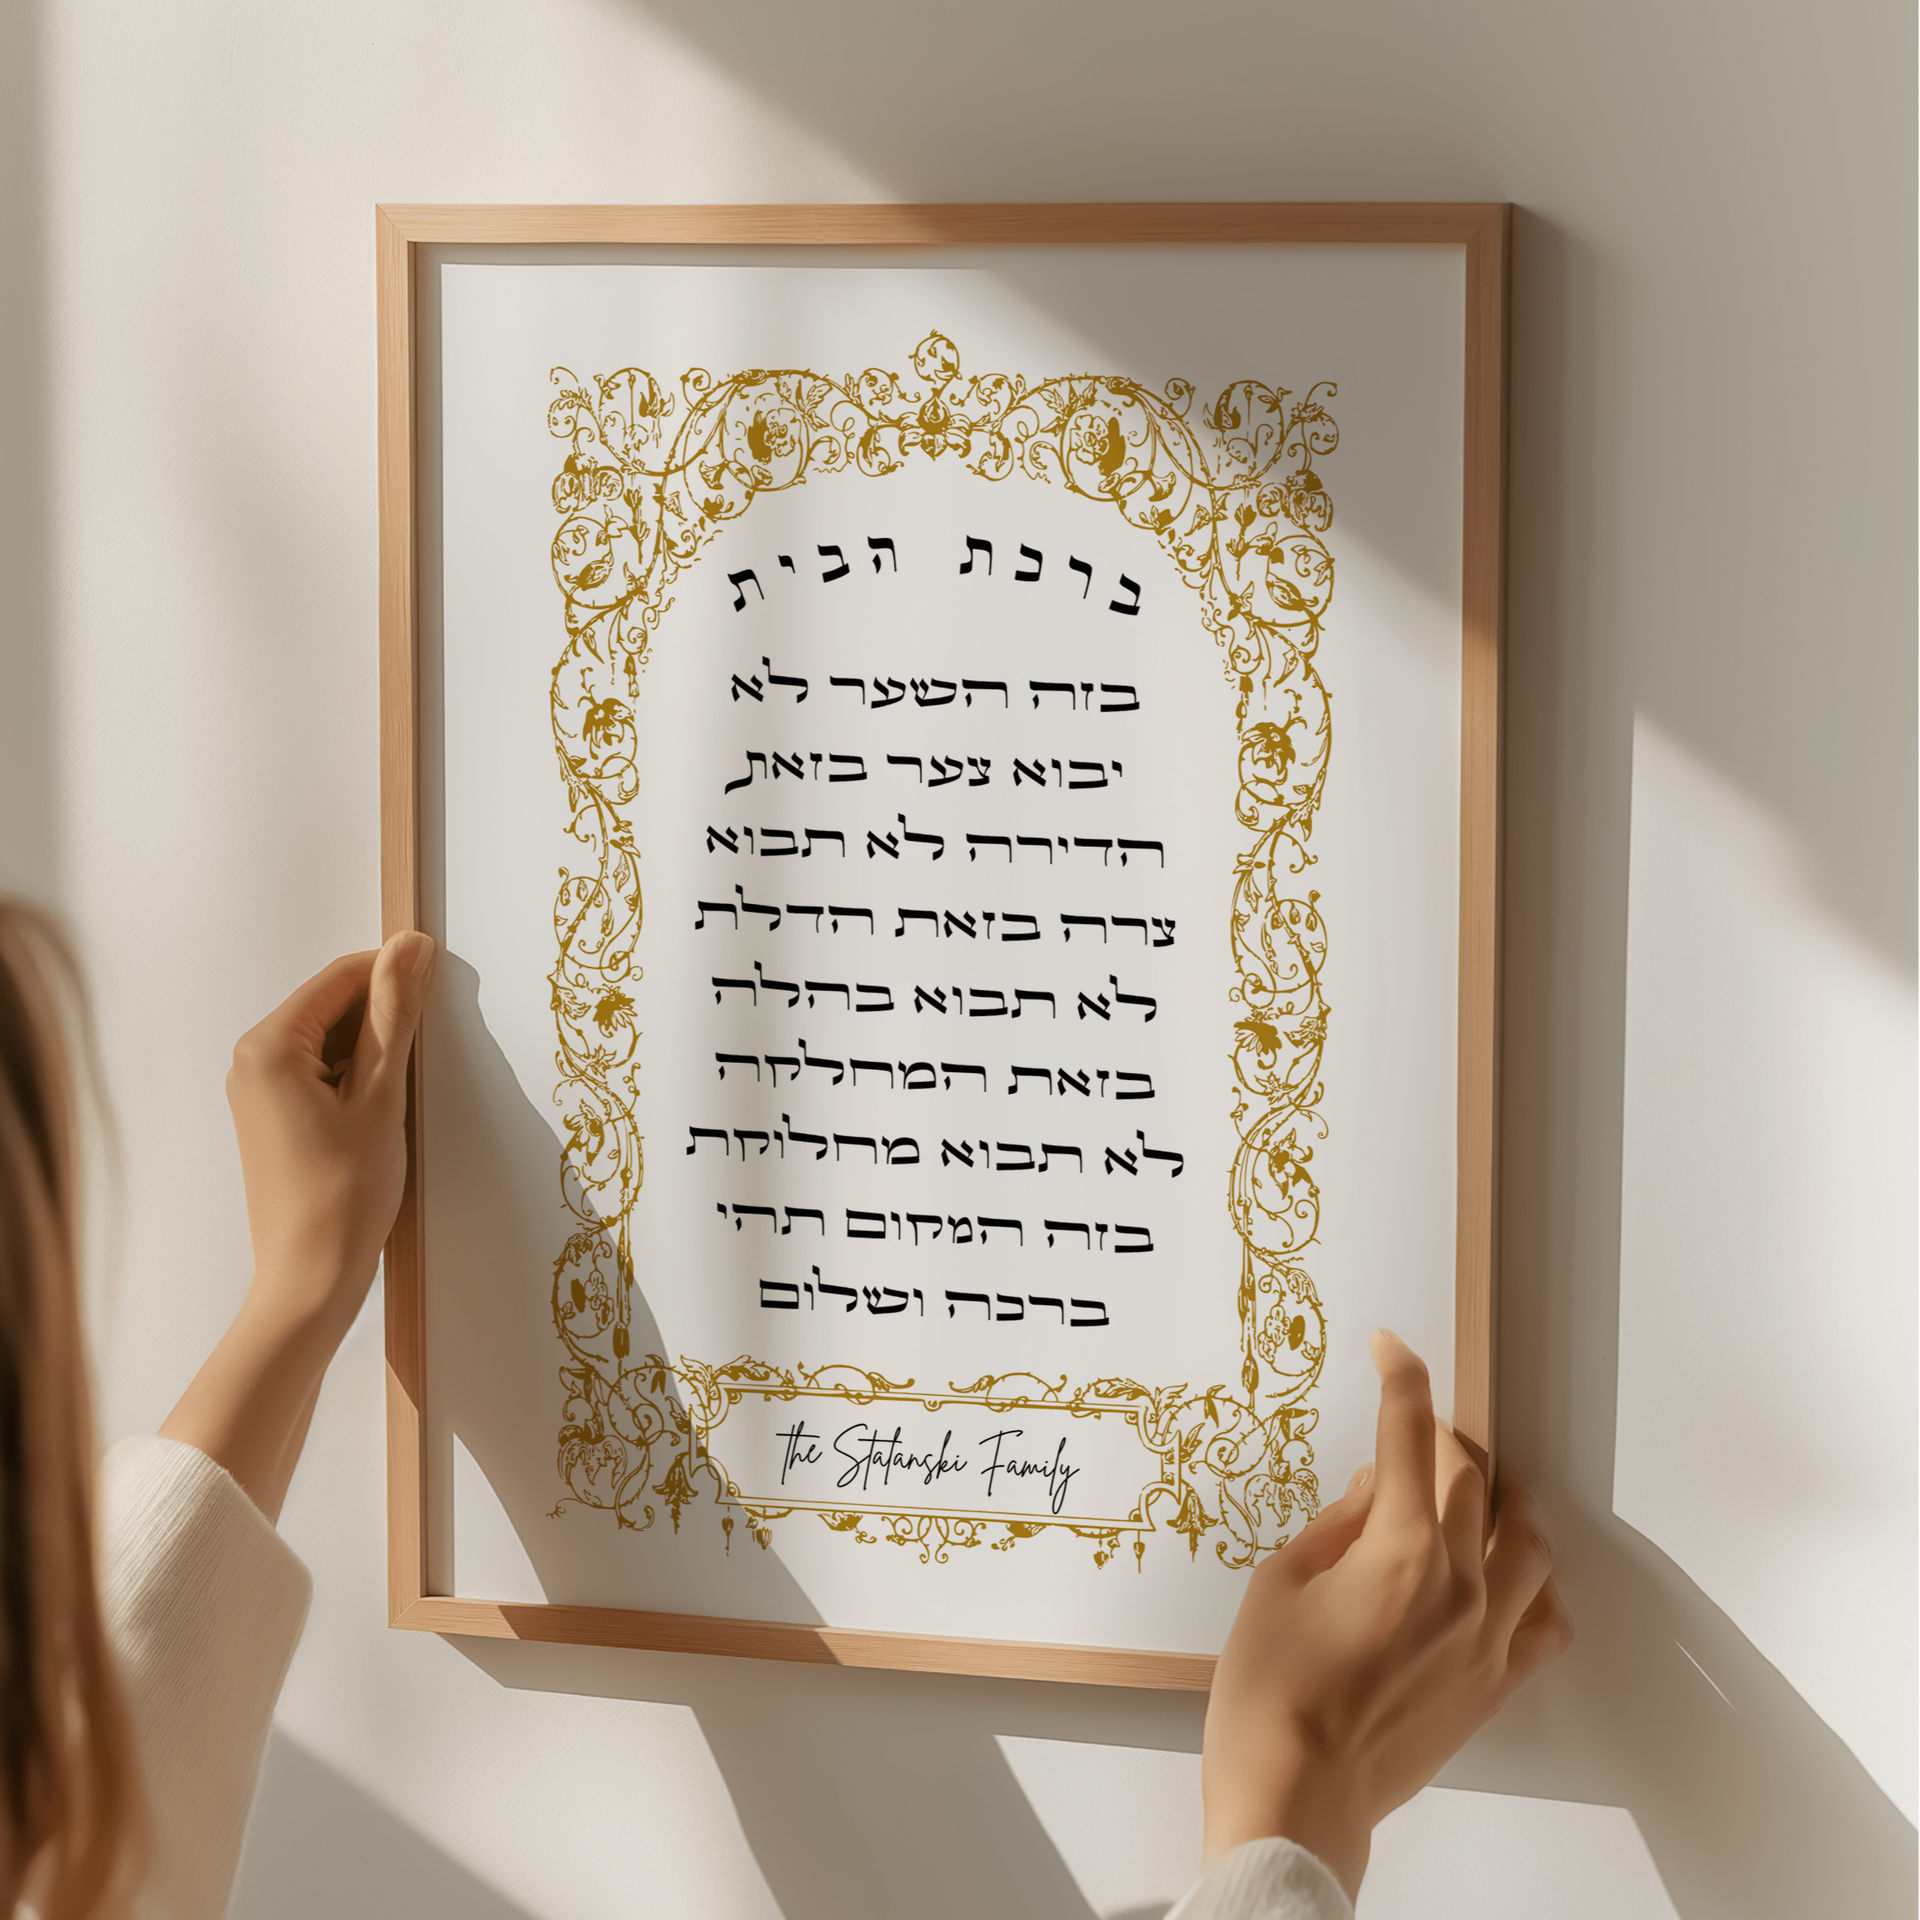 ברכת הבית
בזה השער לא
יבוא צער בזאת
הדירה לא תבוא
צרה בזאת הדלת
לא תבוא בהלה
בזאת המחלקה
לא תבוא מחלוקת
בזה המקום תהי
ברכה ושלום
the Stalanski Family